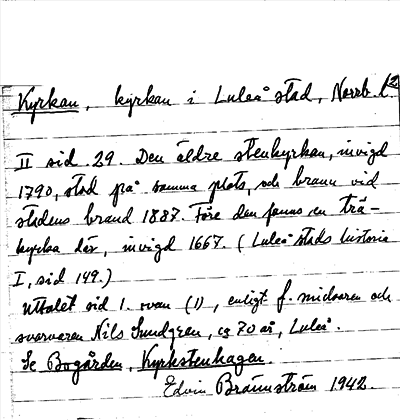 2
Kyrkan, kyrkan i Luleå stad, Norrb. l.
II sid. 29. Den äldre stenkyrkan, invigd
1790, stod på samma plats, och brann vid
stadens brand 1887. Före den fanns en trä-
kyrka där, invigd 1667. (Luleå stads historia
I, sid 149.)
Uttalet sid 1. ovan (1), enligt f. mjölnaren och
svarvaren Nils Sundgren, ca 70 år, Luleå.
Se Bogården, Kyrkstenhagen.
Edvin Brännström 1942.